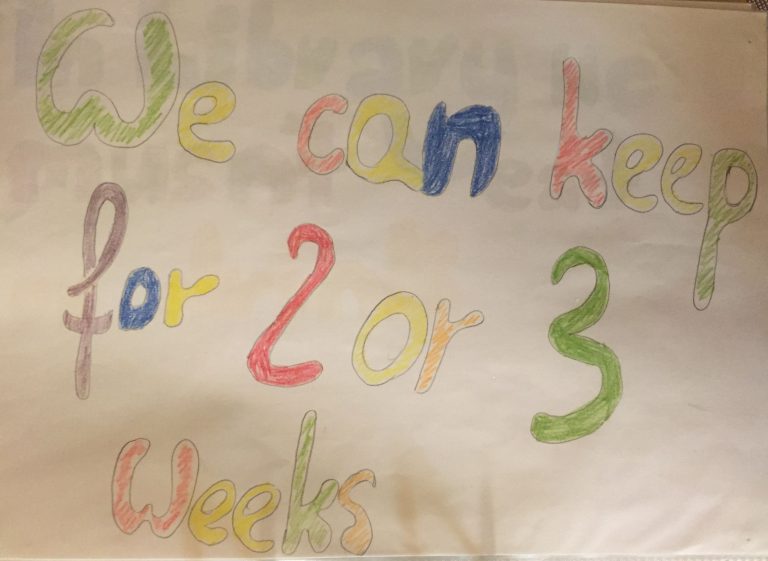 We can keep
for 2 or 3
weeks